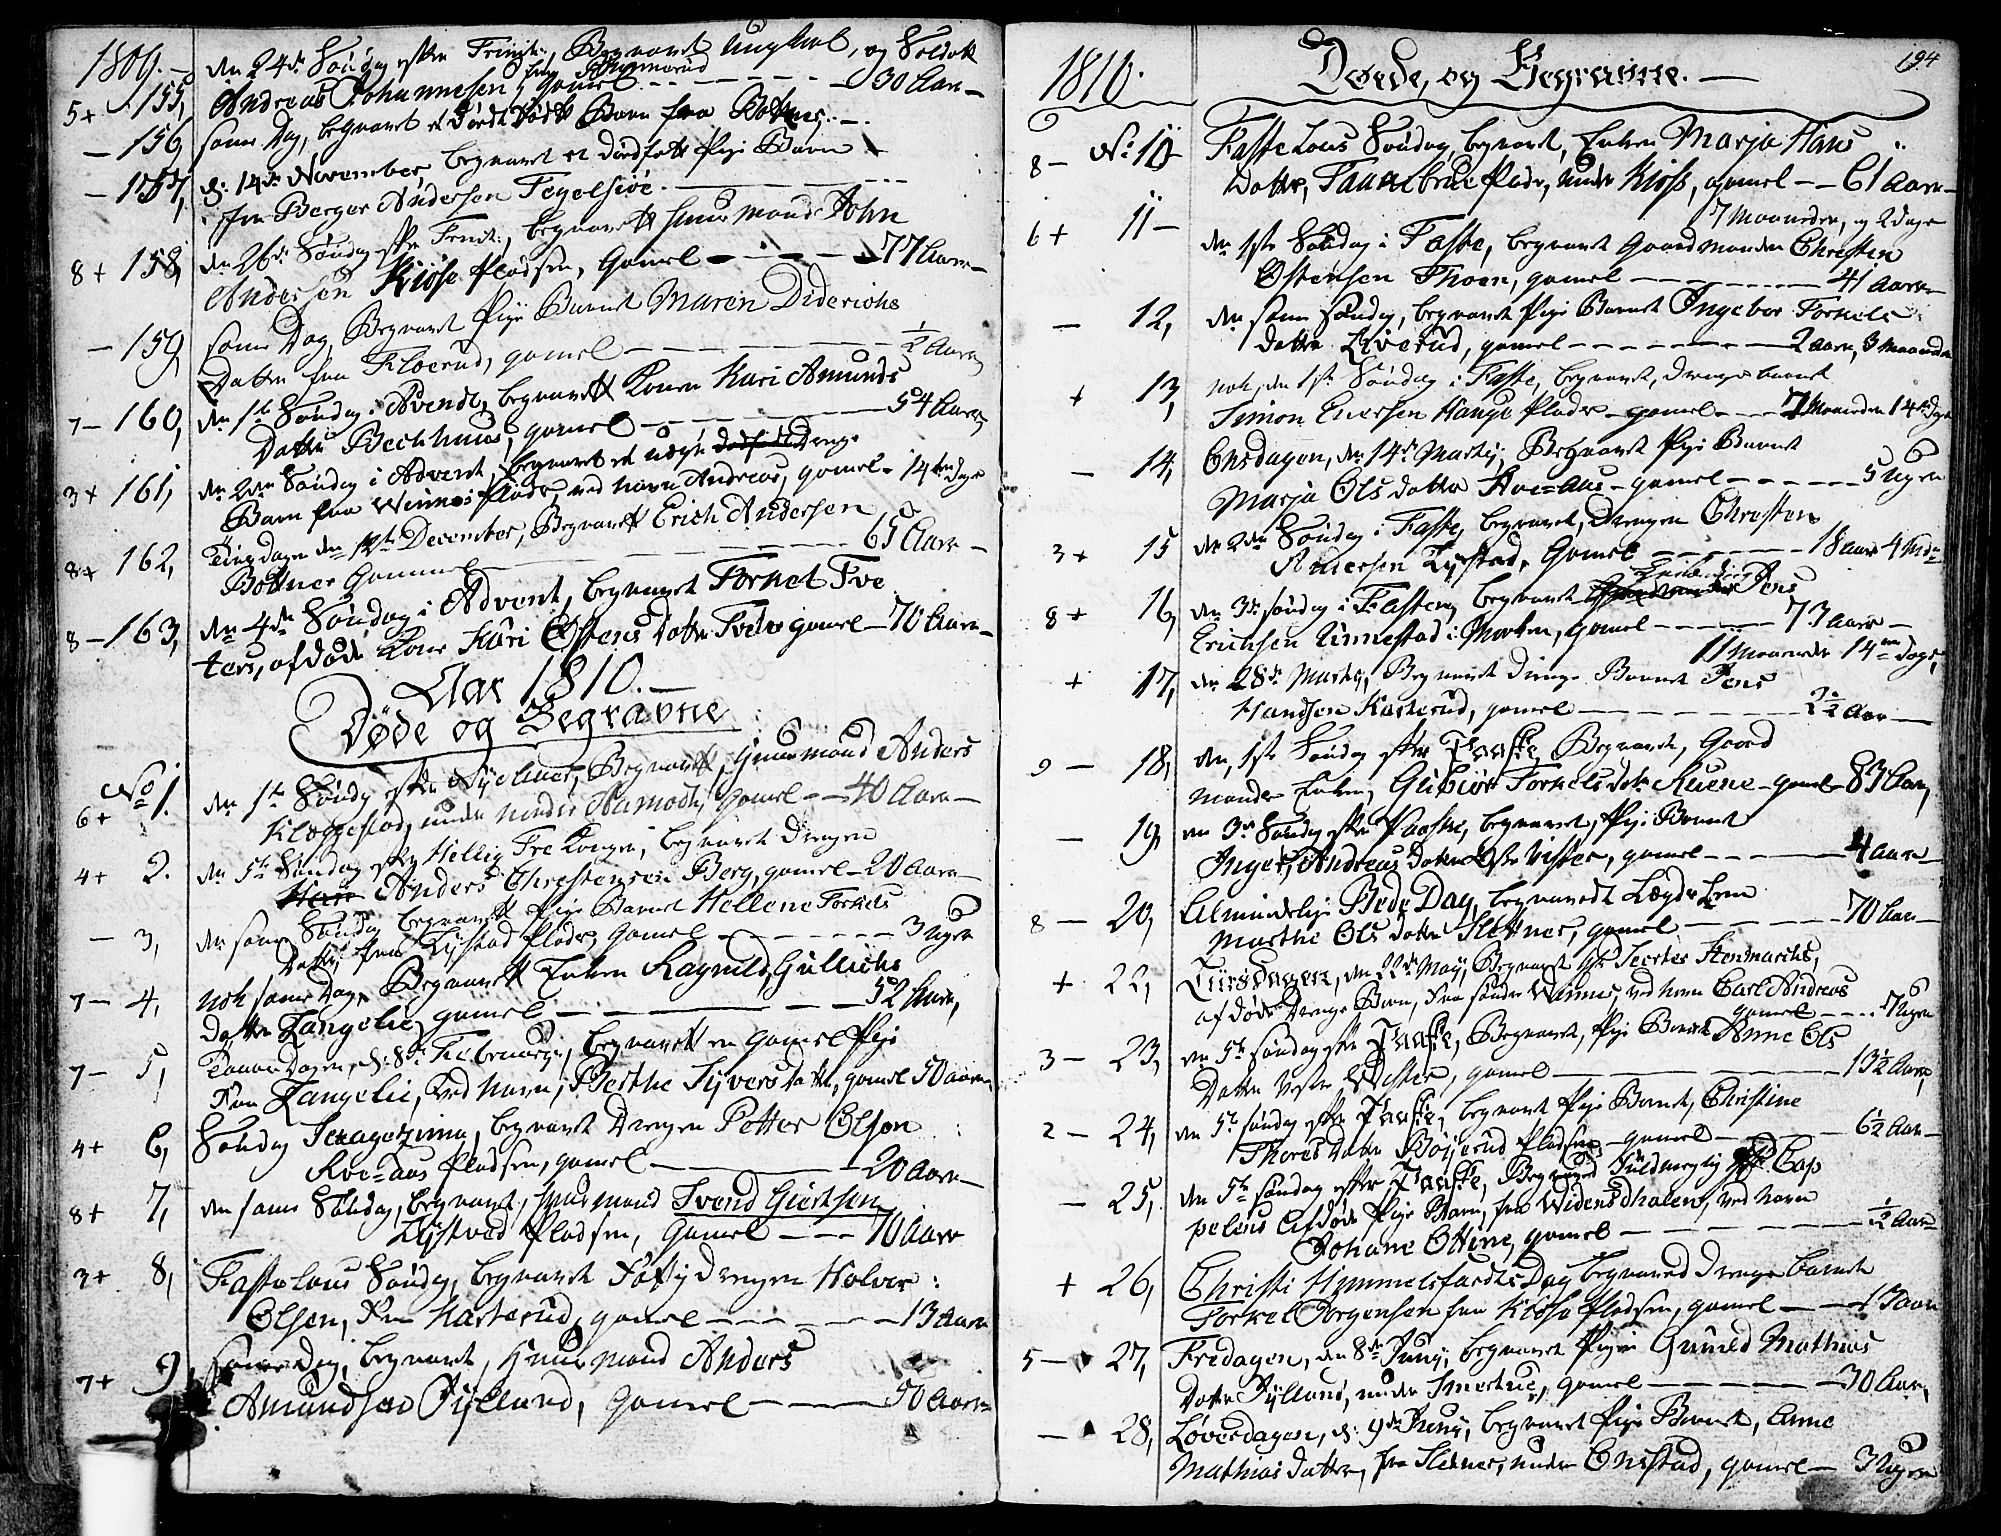 1809.
den 24de Søndag efter Trinit:, Begravet Ungkal, og Soldat
5+ 155, Andreas Johannesen, gamel - - - 30 Aar
- 156, same Dag, begravet et dødfødt Barn fra Bottner.
- 157, d: 14de November, begravet et dødfødt Pige Barn
fra Berger Andersen Tegelsiøe.
den 26de Søndag efter Trinit:, begravet Huusmand John
8+ 158, Andersen Kiøse Pladsen, Gamel - - - 77 Aar
- 159, same Dag Begravet Pige Barnet Maren Diderichs
Datter fra Floerud, gamel - - - 1/2 Aar
7- 160, den 1te Søndag i Advent, begravet Konen Kari Amunds
Datter Bechhuus, gamel - - - 54 Aar
3+ 161, den 2den Søndag i Advent, begravet et uægte Drenge
Barn fra Winnes Plads, ved navn Andreas, gamel - 14ten Dage
8+ 162, Tirsdagen den 12te December, Begravet Erich Andersen
Bottner Gammel - - - 65 Aar
8- 163, den 4de Søndag i Advent, begravet Torkel Tve
ters, afdøde Kone Kari Ostens Datter Tveter gamel - 70 Aar
Aar 1810.
Døde og Begravne
6+ No 1. den 1te Søndag efter Nyeaar, Begravet, Huusmand Anders
Kloppestad, under Nordre Aamodt, gamel - 40 Aar
4+ 2. den 5te Søndag efter Hellig Tre Konger, begravet Drengen
Anders Christensen Berg, gamel - 20 Aar
- 3, den same Søndag begravet Pige Barnet Hellene Torkels
Datter, fra Kystad Plads, gamel - - - 3 Uger
7- 4, nok same Dag, Begravet Enken Ragnild Gullichs
Datter Langelie, gamel - - - 52 Aar,
7- 5, Torsdagen, d: 8de February, begravet en gamel Pige
Fra Langelie, ved Navn, Berthe Syvers Datter, gamel 50 aar
4+ 6, Søndag Sexagesima, begravet Drengen Petter Olsen
Hve-aas Pladsen, gamel - - - 20 Aar
8+ 7, den same Søndag, begravet, Huusmand Svend Giertsen
Lystad Pladsen, Gamel - - - 70 Aar
3+ 8, Fastelaus Søndag, begravet Drengen Halvor
Olsen, Fra Kasterud, gamel - - - 13 Aar
7+ 9, same Dag, begravet, Huusmand Anders
Amundsen Jylland, Gamel - - - 50 Aar
1810. Døde, og Begravne. 194
8- No 10 Fastelaus Søndag, begravet, Enken Marja Hans
Datter, Taanebrue Plads, under Kiøs, gamel - 61 Aar
7 Maaneder, og 2 dage
6+ 11- den 1ste Søndag i Faste, begravet Gaardmanden Christen
Ostensen Thoen, gamel - - - 41 Aar
- 12, den same Søndag, begravet Pige Barnet Ingebor Torkels
Datter Liverud, gamel - - - 2 aar, 3 Maaneder
+ 13, nok, den 1ste Søndag i Faste, begravet, drenge barnet
Simon Enersen Hauge Plads - gamel - - - 7 Maaneder 14 dage
- 14, Onsdagen, den 14de Marty, Begravet Pige Barnet
Marja Ols datter Hve-aas - gamel - - - 5 Uger
3+ 15 den 2den Søndag i Faste, begravet, Drengen Christen
Andersen Kystad, Gamel - - - 18 aar
8+ 16, den 3de Søndag i Fasten, begravet Jens
Erichsen Linnestad i Moelen, gamel - - - 73 Aar
11 Maaneder 14 dage,
+ 17, den 28de Marty, Begravet Drenge Barnet Jens
Handsen Kasterud, gamel - - - 2 1/2 Aar
9 - 18, den, 1ste Søndag efter Paaske, Begravet, Gaard
Mandens Enken, Gubiør Torkels datter Ruene - gamel - 83 Aar,
- 19, den 3de Søndag efter Paaske, begravet, Pige Barnet
Inger, Andreas Datter Vister, gamel - - - 4 Aar
8 - 20, Almindelig Bede Dag, begravedt Lægds Lem
Marthe Ols datter Slettner, gamel - - - 70 Aar
+ 22, Tirsdagen, den 22de May, Begravet Hr Stenmarchs,
afdøde Drenge Barn, fra søndre Winnes, ved navn Carl Andreas
gamel - - - 7 Uger
3- 23, den 5te Søndag efter Paaske, Begravet, Pige Barnet Anne Ols
Datter Vestre Wister, gamel - - - 13 1/2 Aar,
2- 24, den 5te Søndag efter Paaske, begravet Pige Barnet, Christine
Thores Datter Bøyerud Pladsen - gamel - - - 6 1/2 Aar
- 25, den 5te Søndag efter Paaske, Begraved Fuldmegtig Cap
pelens Afdøde Pige Barn, fra Widensdhalen, ved navn
Johane Ottine, gamel - - - 1/2 Aar
+ 26, Christi Himmelfardts Dag begraved Drenge barnet
Torkel Jørgensen fra Kiøse Pladsen, gamel - - 1 Aar
5- 27, Fredagen, den 8de Juny, begravet Pigen Gunild Mathias
Datter Jylland, under Smertue, gamel - - - 30 Aar,
- 28, Løverdagen, d: 9de Juny, begravet Pige Barnet, Anne
Mathias datter, fra Sletner, under Onstad, gamel - 3 Uger